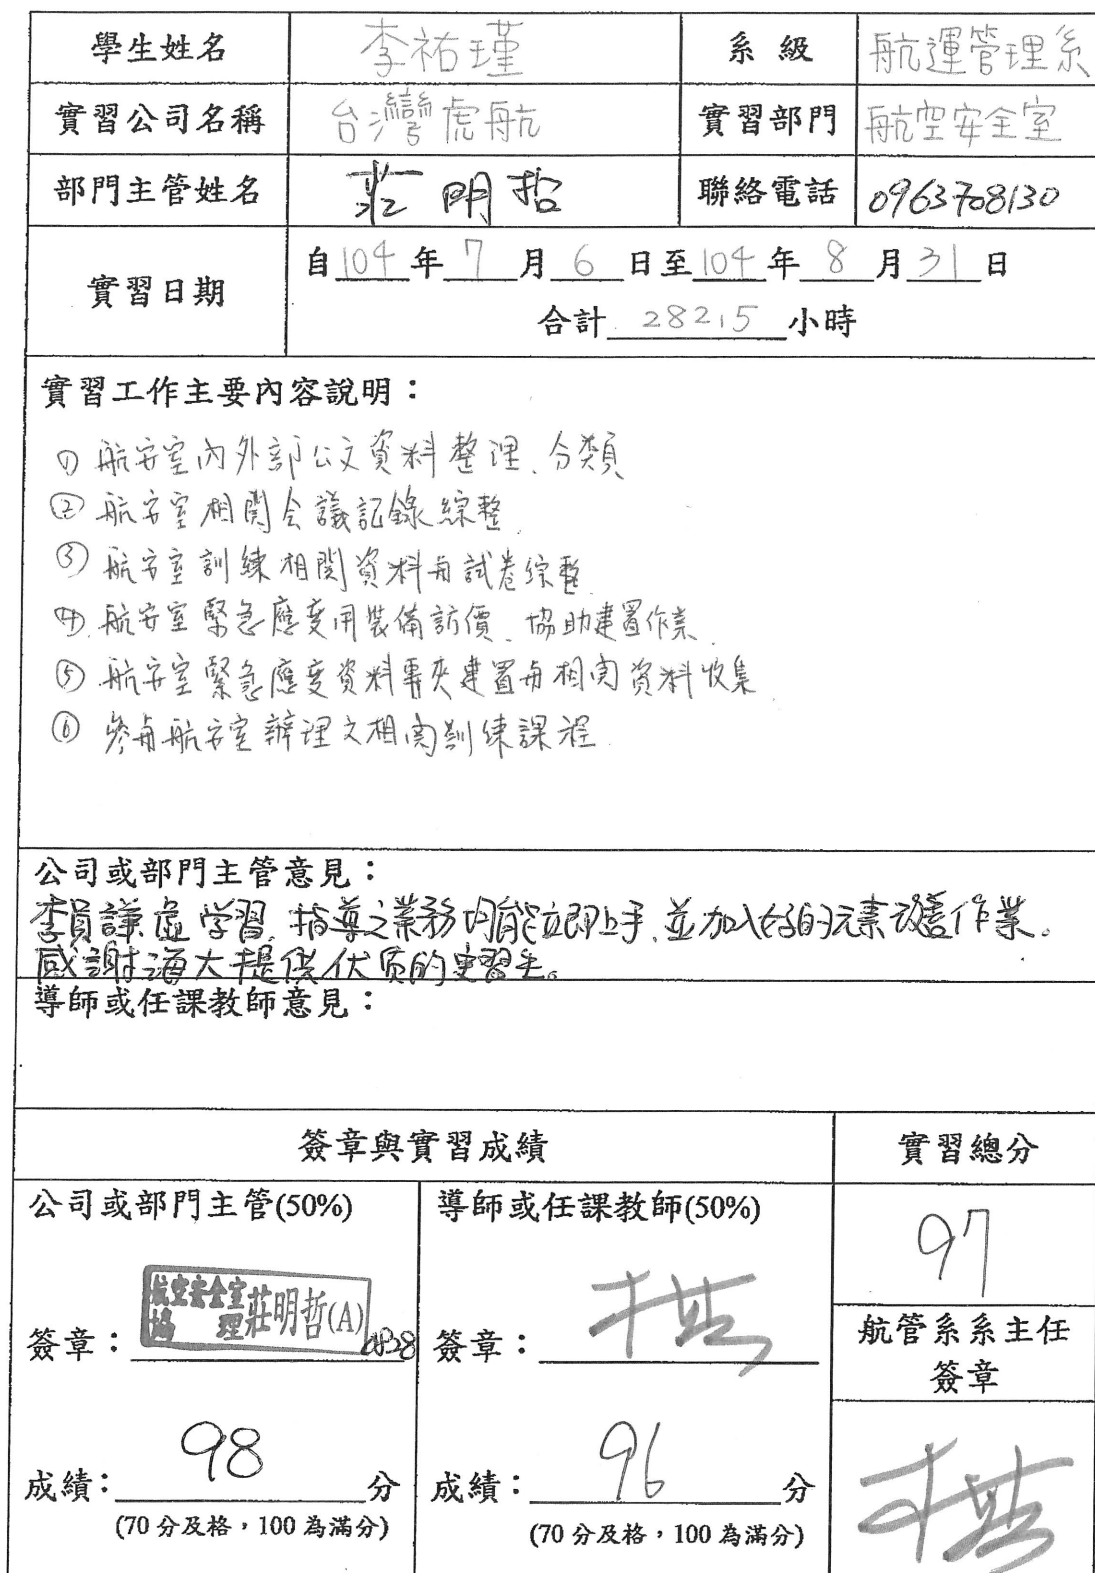 學生姓名 李祐瑾 系級 航運管理系
實習公司名稱 台灣虎航 實習部門 航空安全室
部門主管姓名 莊明哲 聯絡電話 0963708130
實習日期 自104年7月6日至104年8月31日
合計 282.5 小時
實習工作主要內容說明：
① 航安室內外部公文資料整理、分類
② 航安室相関会議記錄綜整
③ 航安室訓練相関資料与試卷綜整
④ 航安室緊急應変用裝備訪價、協助建置作業
⑤ 航安室緊急應变資料專夾建置与相関资料收集
⑥ 參与航安室辦理之相関訓練課程
公司或部門主管意見：
李員謙虛学習,指導之業務均能立即上手,並加入好的元素改善作業。
感謝海大提供优质的实習生。
導師或任課教師意見：
簽章與實習成績 實習總分
公司或部門主管(50%) 導師或任課教師(50%) 97
航空安全室
協理 莊明哲(A)
簽章： 0828 簽章： 航管系系主任
簽章
成績：98分 成績：96分
(70分及格，100為滿分) (70分及格，100為滿分)